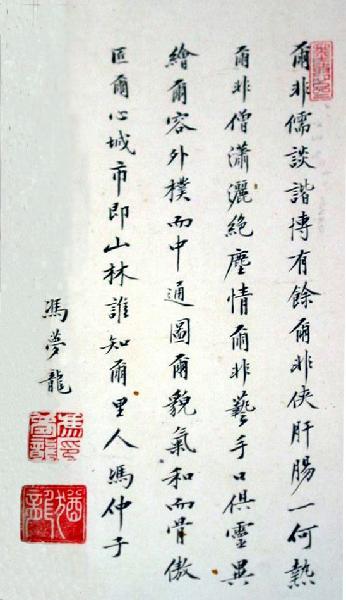 爾非儒談諧博有餘爾非俠肝腸一何熱
爾非僧瀟灑絕塵情爾非藝手口俱靈異
繪爾容外樸而中通圖爾貌氣和而骨傲
匠爾心城市即山林誰知爾里人馮仲子
馮夢龍
馮印夢龍
猶龍